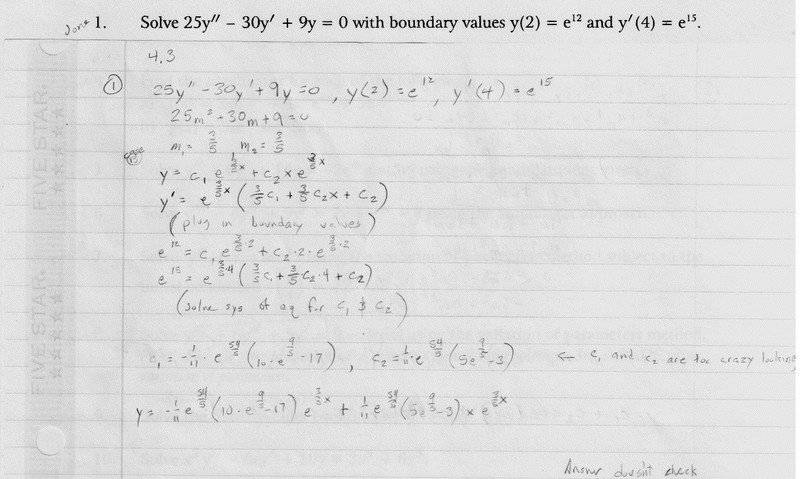 Done 1. Solve 25y″ – 30y′ + 9y = 0 with boundary values y(2) = e¹² and y′(4) = e¹⁵.
4.3
① 25y″ - 30y′ + 9y = 0 , y(2) = e¹² , y′(4) = e¹⁵
25m² - 30m + 9 = 0
m₁ = 3/5 , m₂ = 3/5
y = c₁ e^(3/5 x) + c₂ x e^(3/5 x)
y′ = e^(3/5 x) (3/5 c₁ + 3/5 c₂x + c₂)
(plug in boundary values)
e¹² = c₁ e^(3/5·2) + c₂·2·e^(3/5·2)
e¹⁵ = e^(3/5·4) (3/5 c₁ + 3/5 c₂·4 + c₂)
(solve sys of eq for c₁ & c₂)
c₁ = -1/11 · e^(54/5) (10·e^(9/5) - 17) , c₂ = 1/11 · e^(54/5) (5e^(9/5) - 3) ← c₁ and c₂ are too crazy looking
y = -1/11 e^(54/5) (10·e^(9/5) - 17) e^(3/5 x) + 1/11 e^(54/5) (5e^(9/5) - 3) x e^(3/5 x)
Answer doesn't check
FIVE STAR.
FIVE STAR.